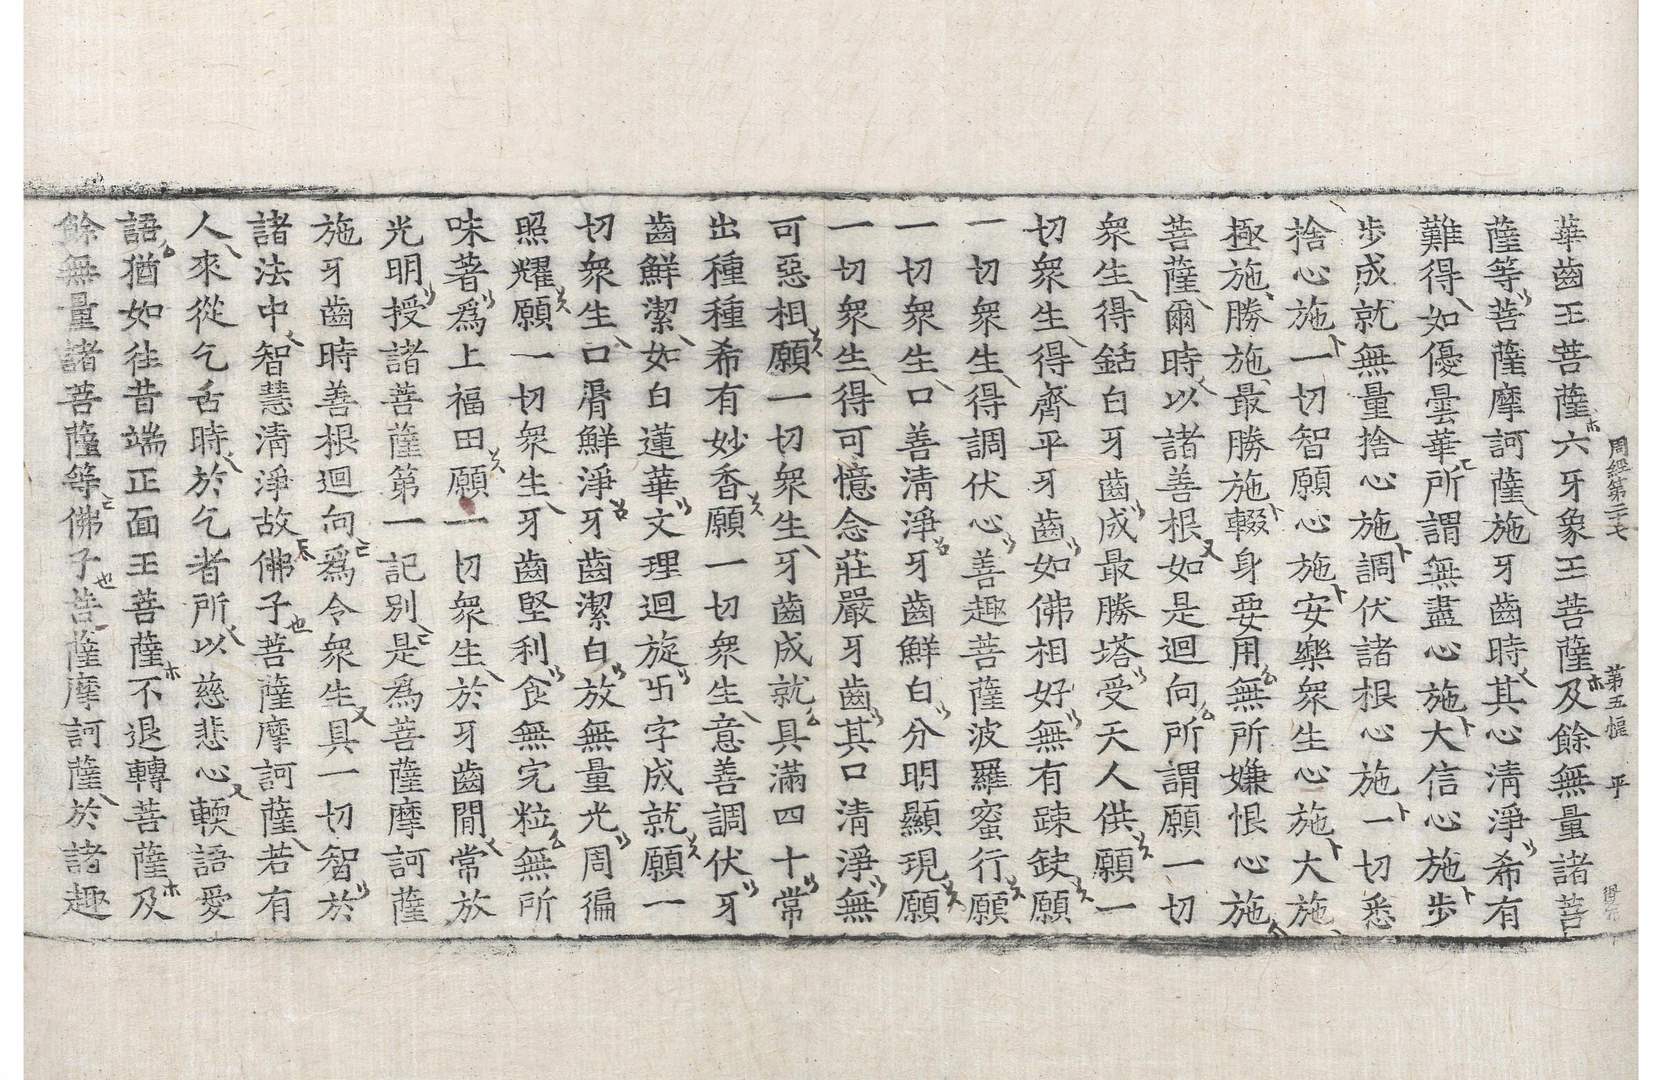 周經第二十七　第五幅　平
華齒王菩薩六牙象王菩薩及餘無量諸菩
薩等菩薩摩訶薩施牙齒時其心清淨希有
難得如優曇華所謂無盡心施大信心施步
步成就無量捨心施調伏諸根心施一切悉
捨心施一切智願心施安樂衆生心施大施
極施勝施最勝施輟身要用無所嫌恨心施
菩薩爾時以諸善根如是迴向所謂願一切
衆生得銛白牙齒成最勝塔受天人供願一
切衆生得齊平牙齒如佛相好無有疎缺願
一切衆生得調伏心善趣菩薩波羅蜜行願
一切衆生口善清淨牙齒鮮白分明顯現願
一切衆生得可憶念莊嚴牙齒其口清淨無
可惡相願一切衆生牙齒成就具滿四十常
出種種希有妙香願一切衆生意善調伏牙
齒鮮潔如白蓮華文理迴旋卐字成就願一
切衆生口脣鮮淨牙齒潔白放無量光周徧
照耀願一切衆生牙齒堅利食無完粒無所
味著爲上福田願一切衆生於牙齒閒常放
光明授諸菩薩第一記別是爲菩薩摩訶薩
施牙齒時善根迴向爲令衆生具一切智於
諸法中智慧清淨故佛子菩薩摩訶薩若有
人來從乞舌時於乞者所以慈悲心輭語愛
語猶如往昔端正面王菩薩不退轉菩薩及
餘無量諸菩薩等佛子菩薩摩訶薩於諸趣